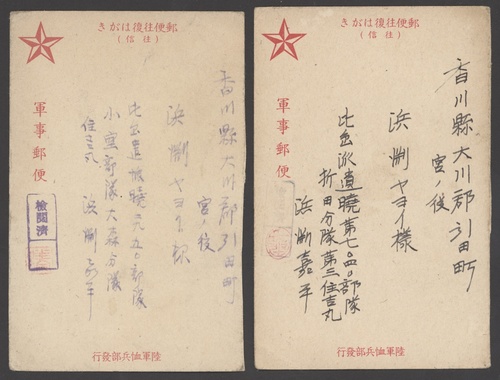 郵便往復はがき
(往信)
軍事郵便
香川縣大川郡引田町
宮ノ後
浜渕ヤヨイ
比島派遣暁
部隊
大森分隊
浜渕嘉平
検閲済
陸軍恤兵部發行
郵便往復はがき
(往信)
軍事郵便
香川縣大川郡引田町
宮ノ後
浜渕ヤヨイ様
比島派遣暁第七〇四〇部隊
折田分隊第三住吉丸
浜渕嘉平
陸軍恤兵部發行